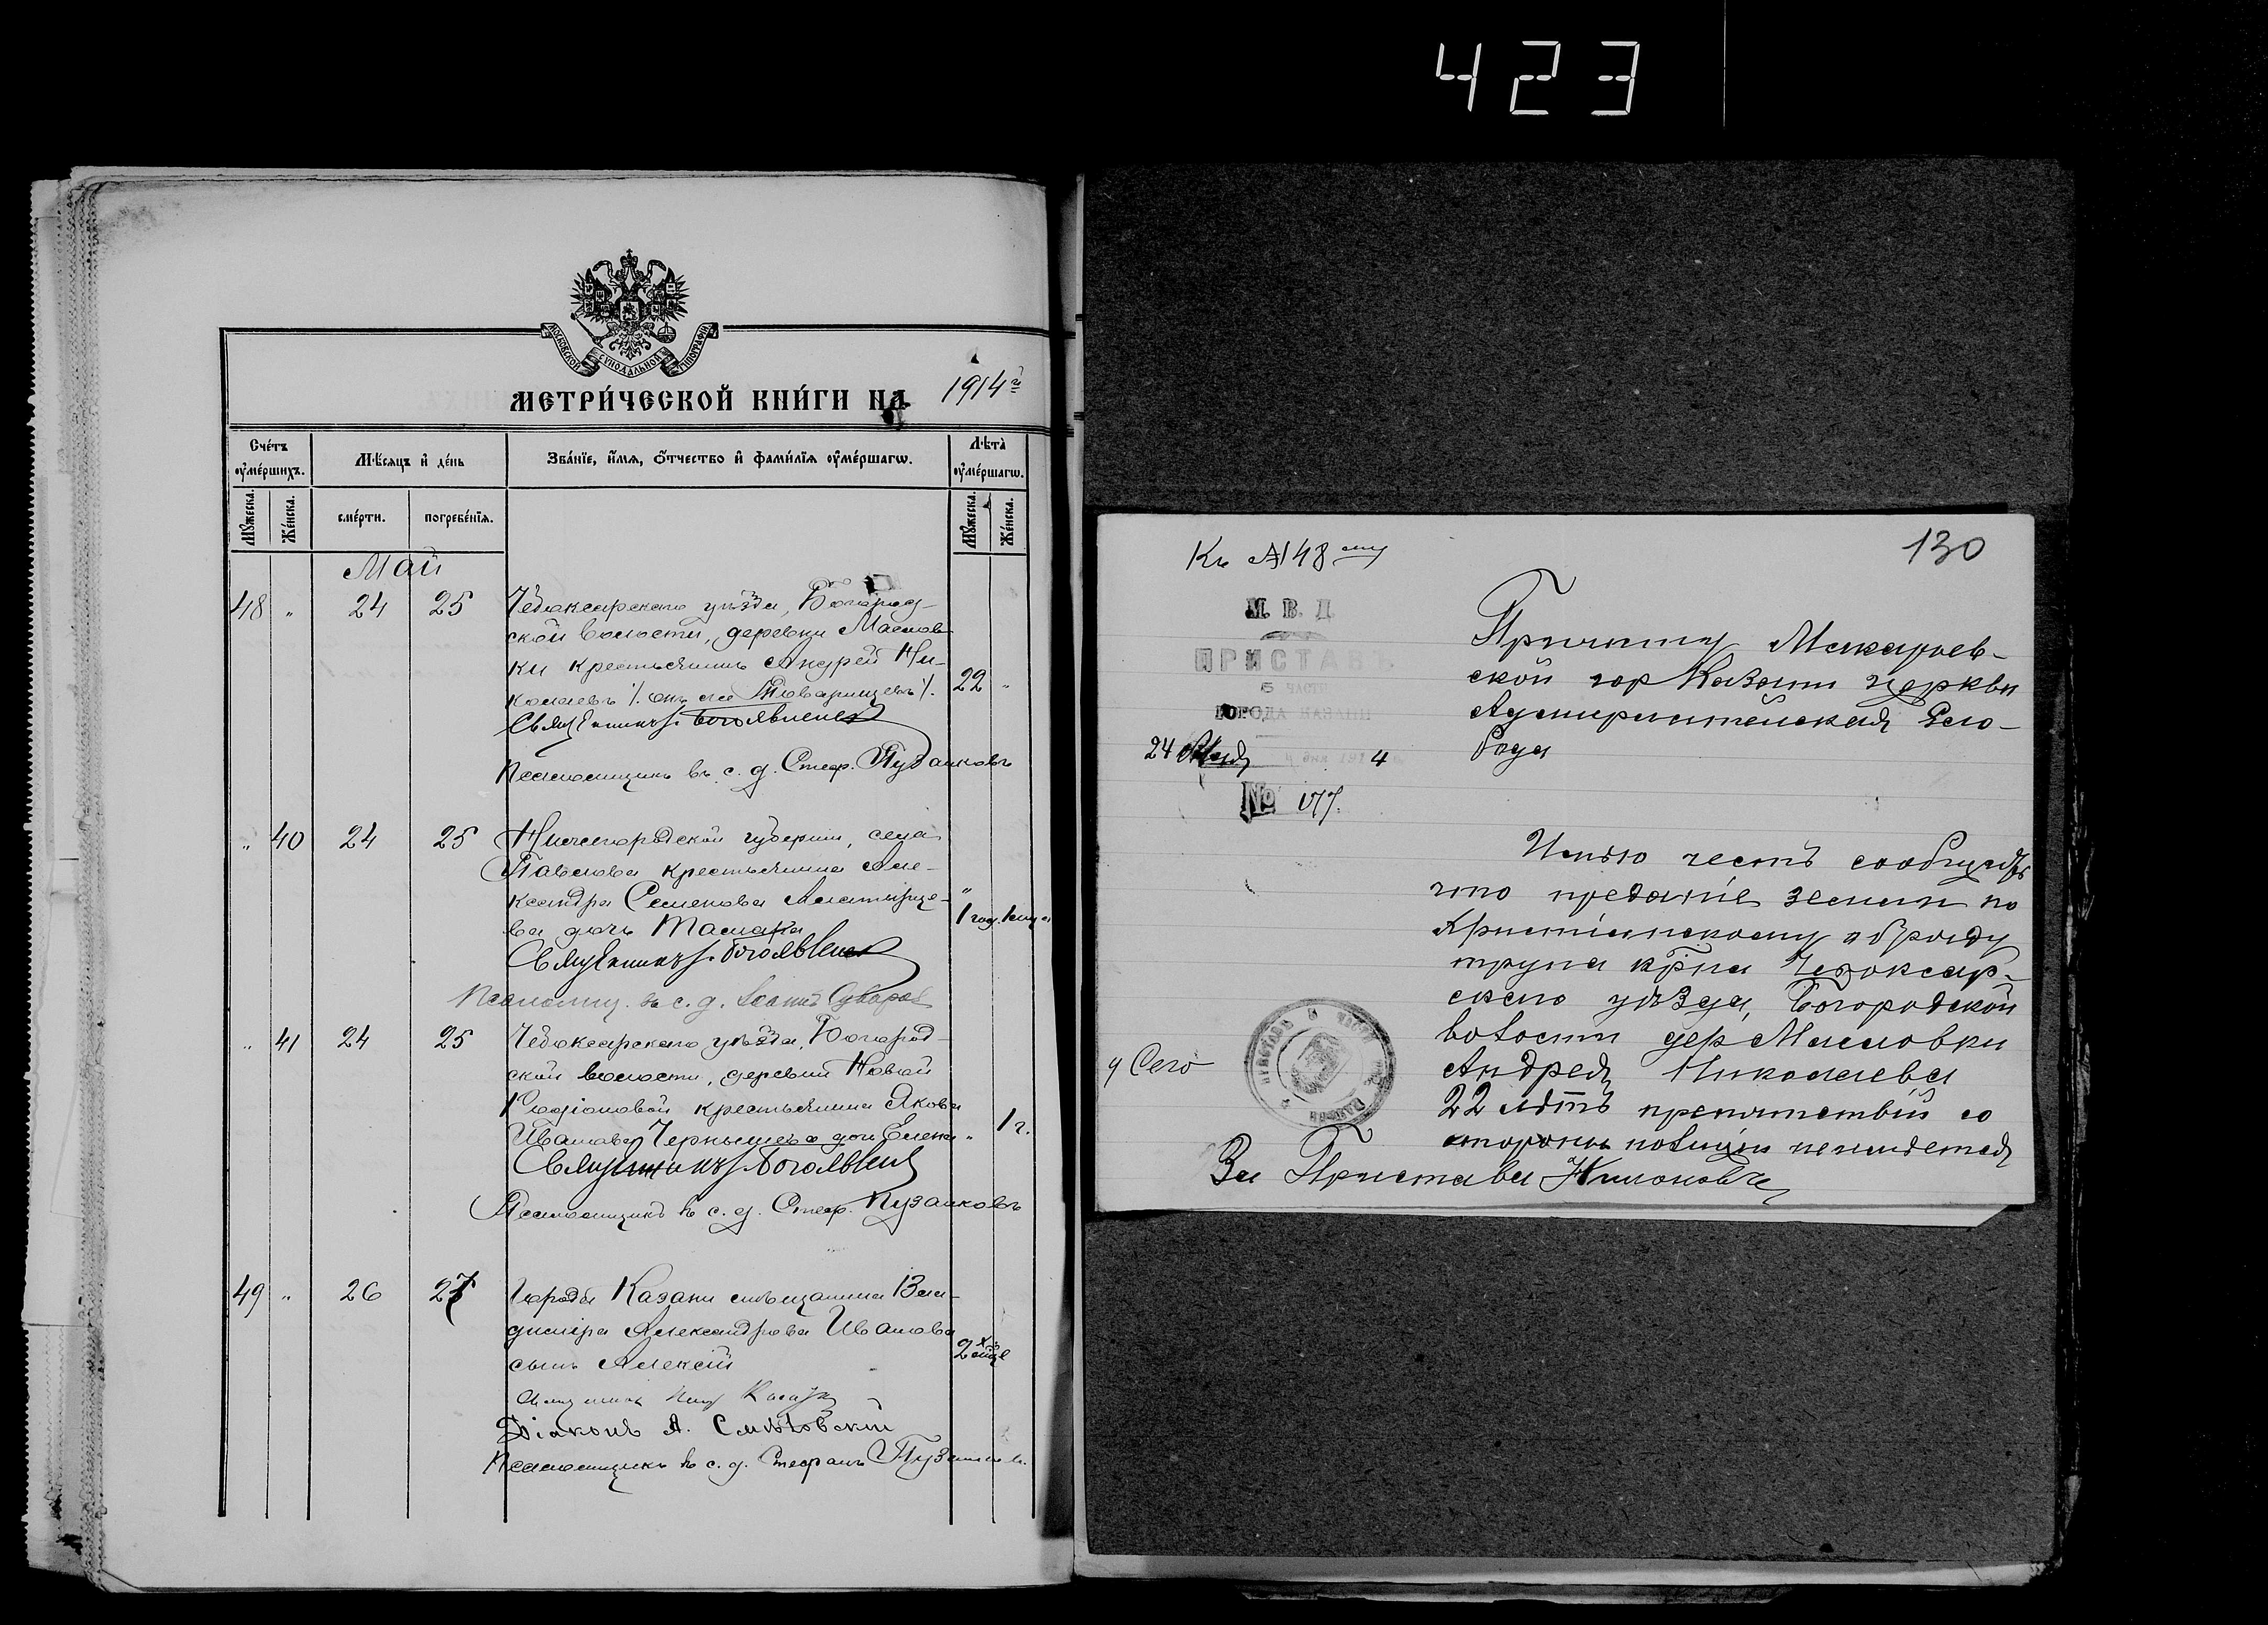 423
МОСКОВСКОЙ СѴНОДАЛЬНОЙ ТИПОГРАФІИ
МЕТРИ́ЧЕСКОЙ КНИ́ГИ НА 1914 г
Сче́тъ ѹ҆ме́ршихъ.
Мѣ́сяцъ и҆ де́нь
Зва́нїе, и҆́мѧ, ѻ҆́тчество и҆ фами́лїѧ ѹ҆ме́ршагѡ.
Лѣ́та ѹ҆ме́ршагѡ.
Мꙋ́жеска.
Же́нска.
сме́рти.
погребе́нїѧ.
Мꙋ́жеска.
Же́нска.
Май
48 " 24 25 Чебоксарскаго уѣзда, Богород-
ской волости, деревни Маслов-
ки крестьянинъ Андрей Ни-
колаевъ /. онъ же Товарищевъ /. 22 "
Священникъ Богоявленск
Псаломщикъ въ с. д. Стеф. Пузанковъ
" 40 24 25 Нижегородской губерніи, села
Павлова крестьянина Але-
ксандра Семенова
ва дочь Тамара " 1 год. 1 мца
Священникъ Богоявленск
Псаломщ. въ с. д. Іоаннъ Суваров
" 41 24 25 Чебоксарскаго уѣзда, Богород-
ской волости, деревни Новой
Родіоновой крестьянина Якова
Иванова Чернышева дочь Елена " 1 г.
Священникъ Богоявленск
Псаломщикъ въ с. д. Стеф. Пузанковъ
49 " 26 27 Города Казани мѣщанина Вла-
диміра Александрова Иванова
сынъ Алексій 2 х мце
Діаконъ А. Смѣловскій
Псаломщикъ въ с. д. Стефанъ Пузанков.
Къ № 48 му
130
М. В. Д
ПРИСТАВЪ
5 ЧАСТИ
ГОРОДА КАЗАНИ
24 Мая 4
№ 177.
Причту Макарьев-
ской гор Казани церкви
Адмиралтейская Сло-
бода
Имѣю честь сообщить
что преданіе земли по
Христіанскому обряду
трупа кр̃на Чебоксар-
скаго уѣзда, Богородской
волости дер Масловки
Андрея Николаева
22 лѣтъ препятствій со
стороны полиціи неимѣется
За Пристава